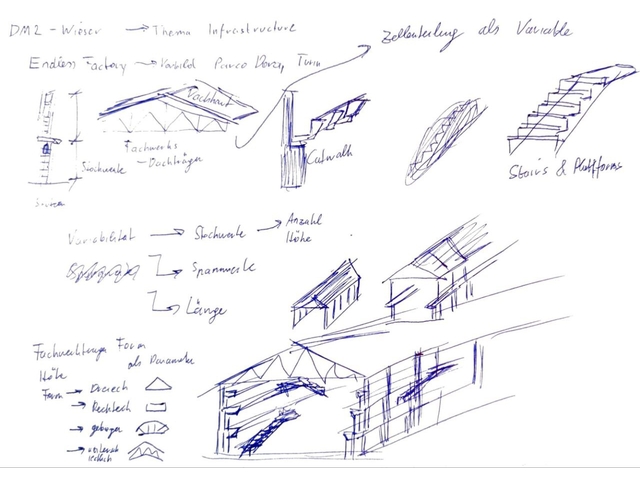 DM2 - Wieser → Thema Infrastructure
Zellenteilung als Variable
Endless Factory → Vorbild Turm
Dachhaut
Fachwerks
- Dachträger
Stockwerke
Catwalk
Stairs & Plattforms
Variabilität → Stockwerke → Anzahl
Höhe
→ Spannweite
→ Länge
Fachwerkträger Form
als Parameter
Höhe
Form → Dreieck
→ Rechteck
→ gebogen